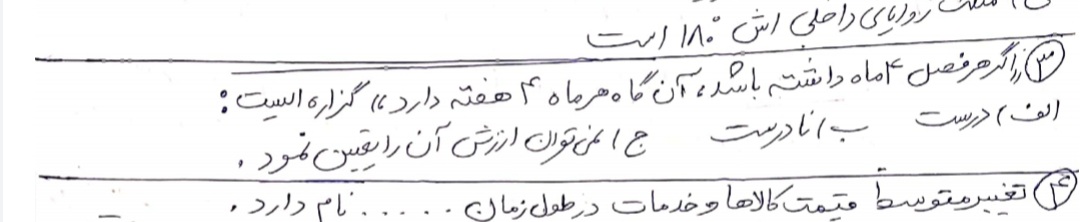 زوایای داخلی اش ۱۸۰° است
۳ «اگر هر فصل ۴ ماه داشته باشد، آن گاه هر ماه ۴ هفته دارد» گزاره ایست:
الف) درست ب) نادرست ج) نمی توان ارزش آن را یقین نمود.
۴ تغییر متوسط قیمت کالاها و خدمات در طول زمان ...... نام دارد.